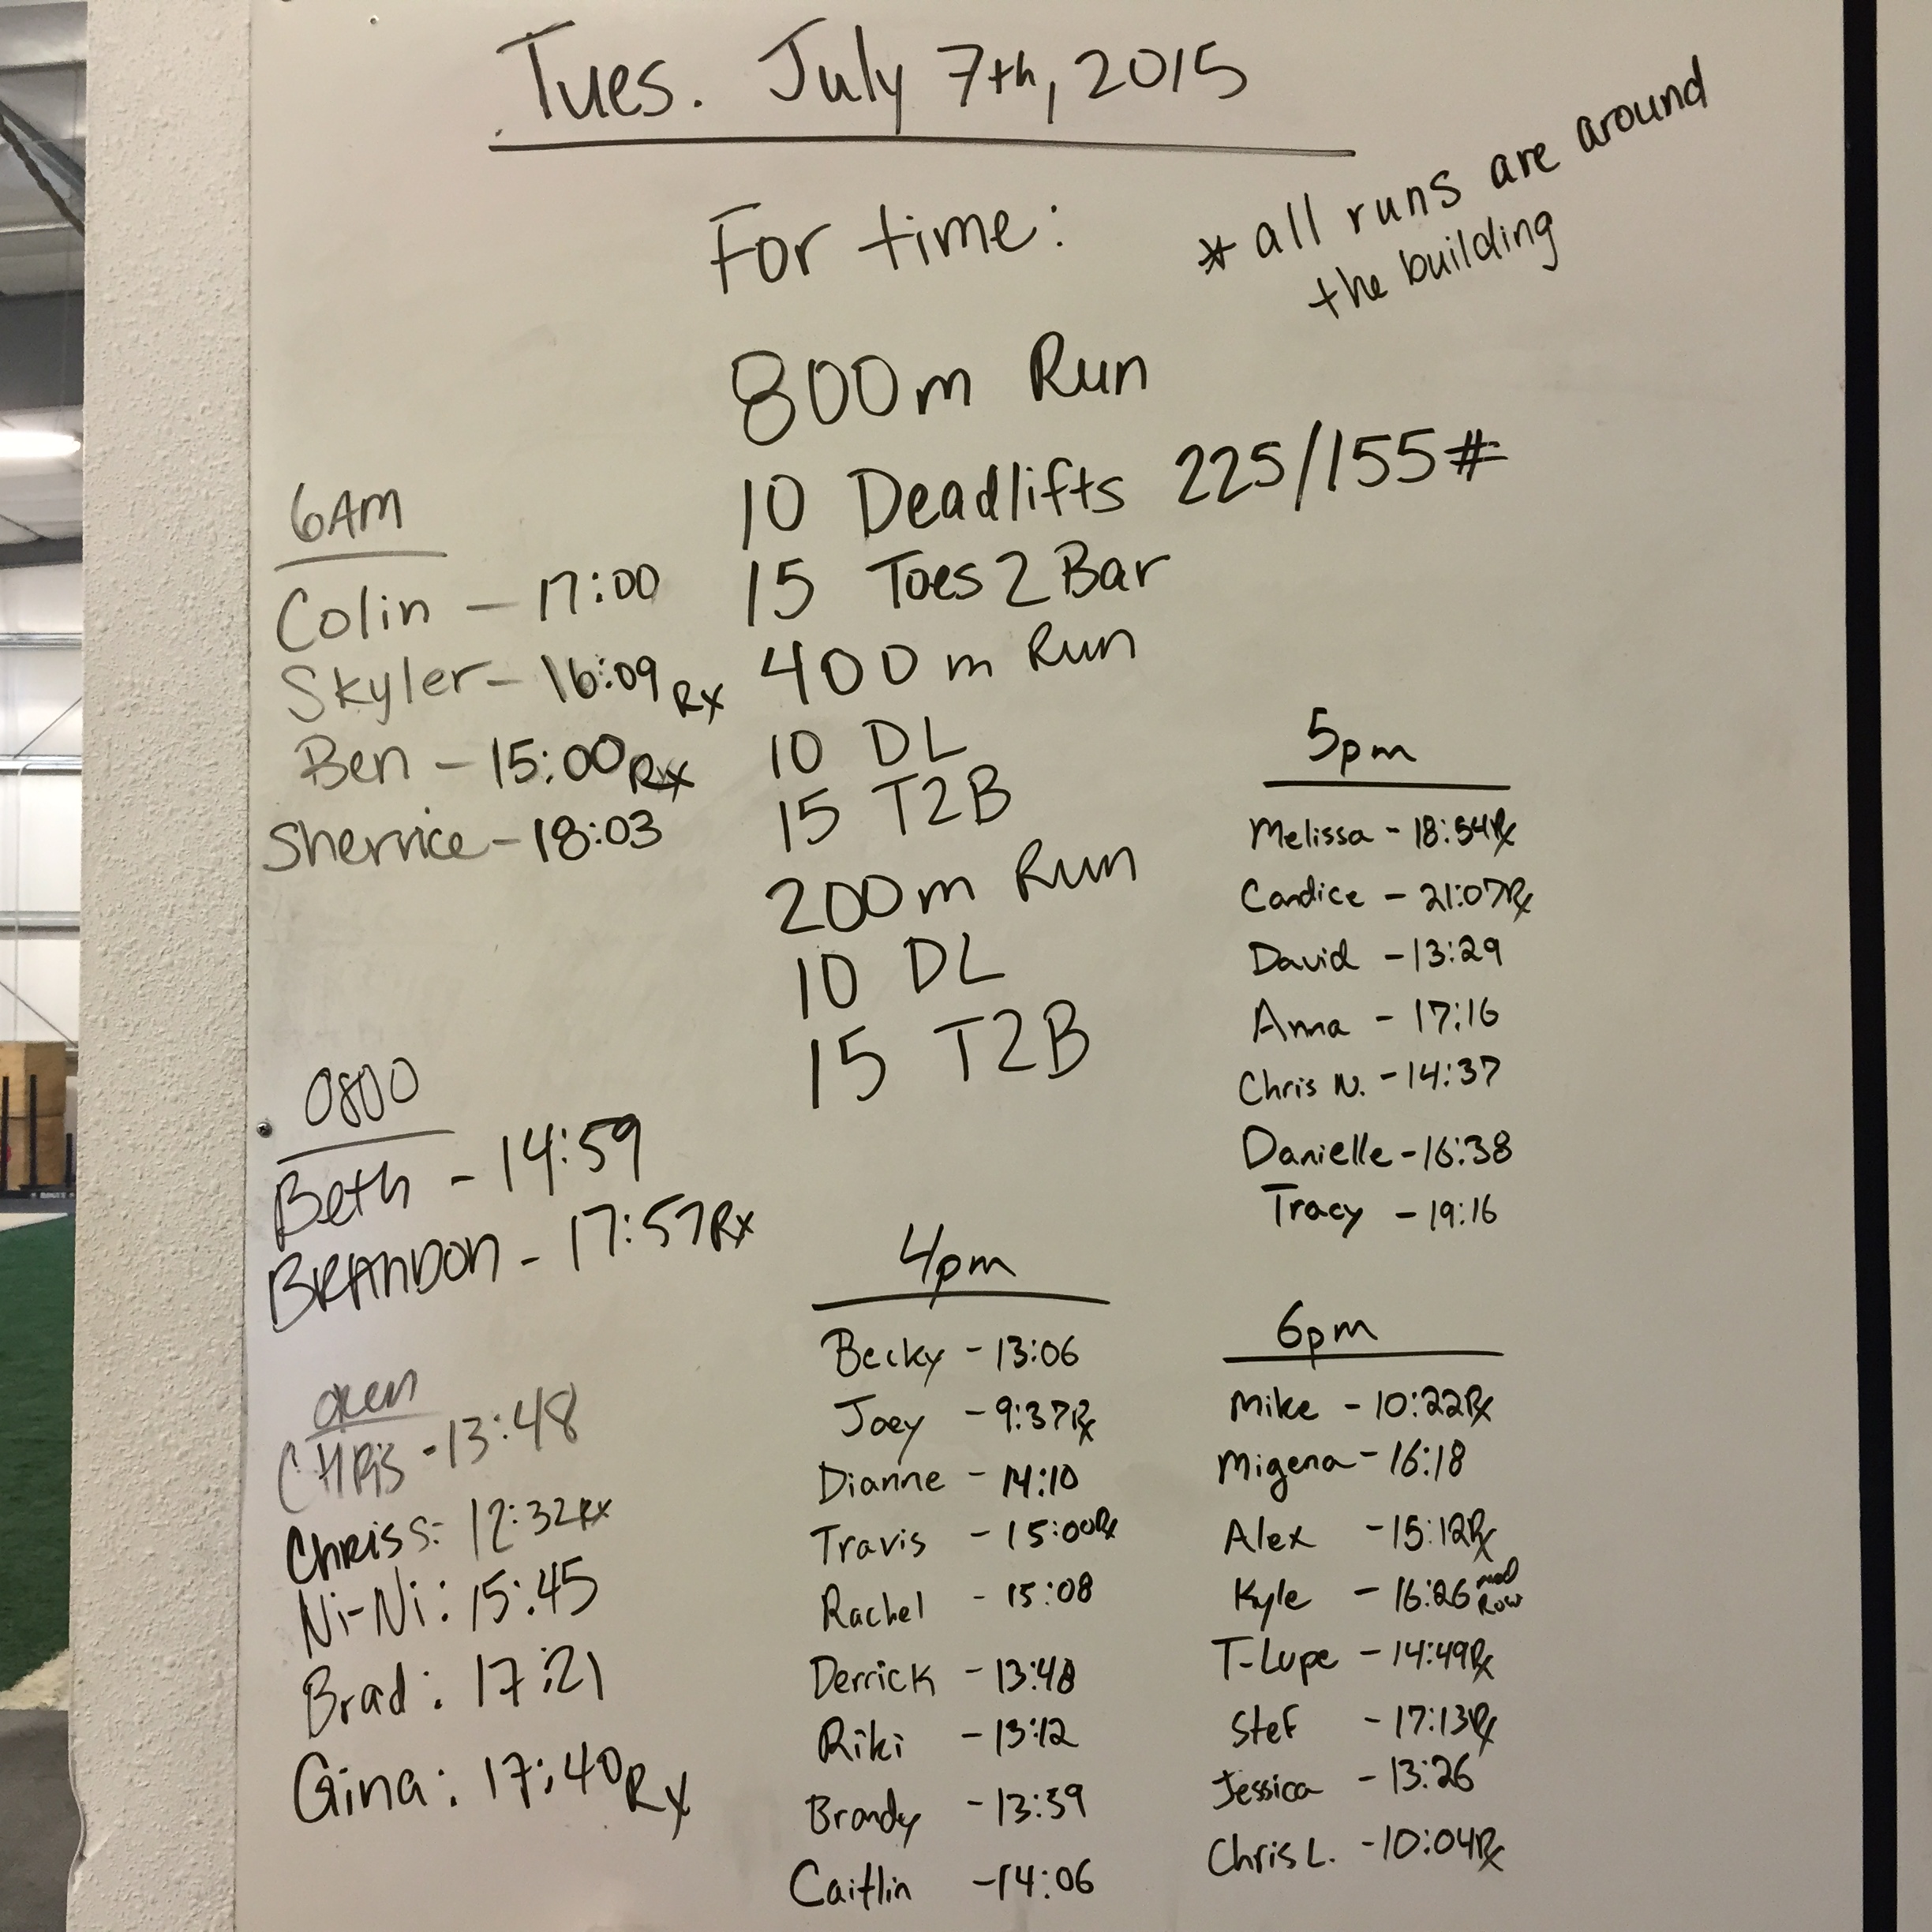 Tues. July 7th, 2015
For time:
* all runs are around
the building
800m Run
10 Deadlifts 225/155#
15 Toes 2 Bar
400m Run
10 DL
15 T2B
200m Run
10 DL
15 T2B
6AM
Colin - 17:00
Skyler - 16:09 Rx
Ben - 15:00 Rx
Sherrice - 18:03
0800
Beth - 14:59
BRANDON - 17:57 Rx
open
CHRis - 13:48
Chris S: 12:32 Rx
Ni-Ni: 15:45
Brad: 17:21
Gina: 17:40 Rx
4pm
Becky - 13:06
Joey - 9:37 Rx
Dianne - 14:10
Travis - 15:00 Rx
Rachel - 15:08
Derrick - 13:48
Riki - 13:12
Brandy - 13:59
Caitlin - 14:06
5pm
Melissa - 18:54 Rx
Candice - 21:07 Rx
David - 13:29
Anna - 17:16
Chris N. - 14:37
Danielle - 16:38
Tracy - 19:16
6pm
Mike - 10:22 Rx
Migena - 16:18
Alex - 15:12 Rx
Kyle - 16:26 mod Row
T-Lupe - 14:49 Rx
Stef - 17:13 Rx
Jessica - 13:26
Chris L. - 10:04 Rx